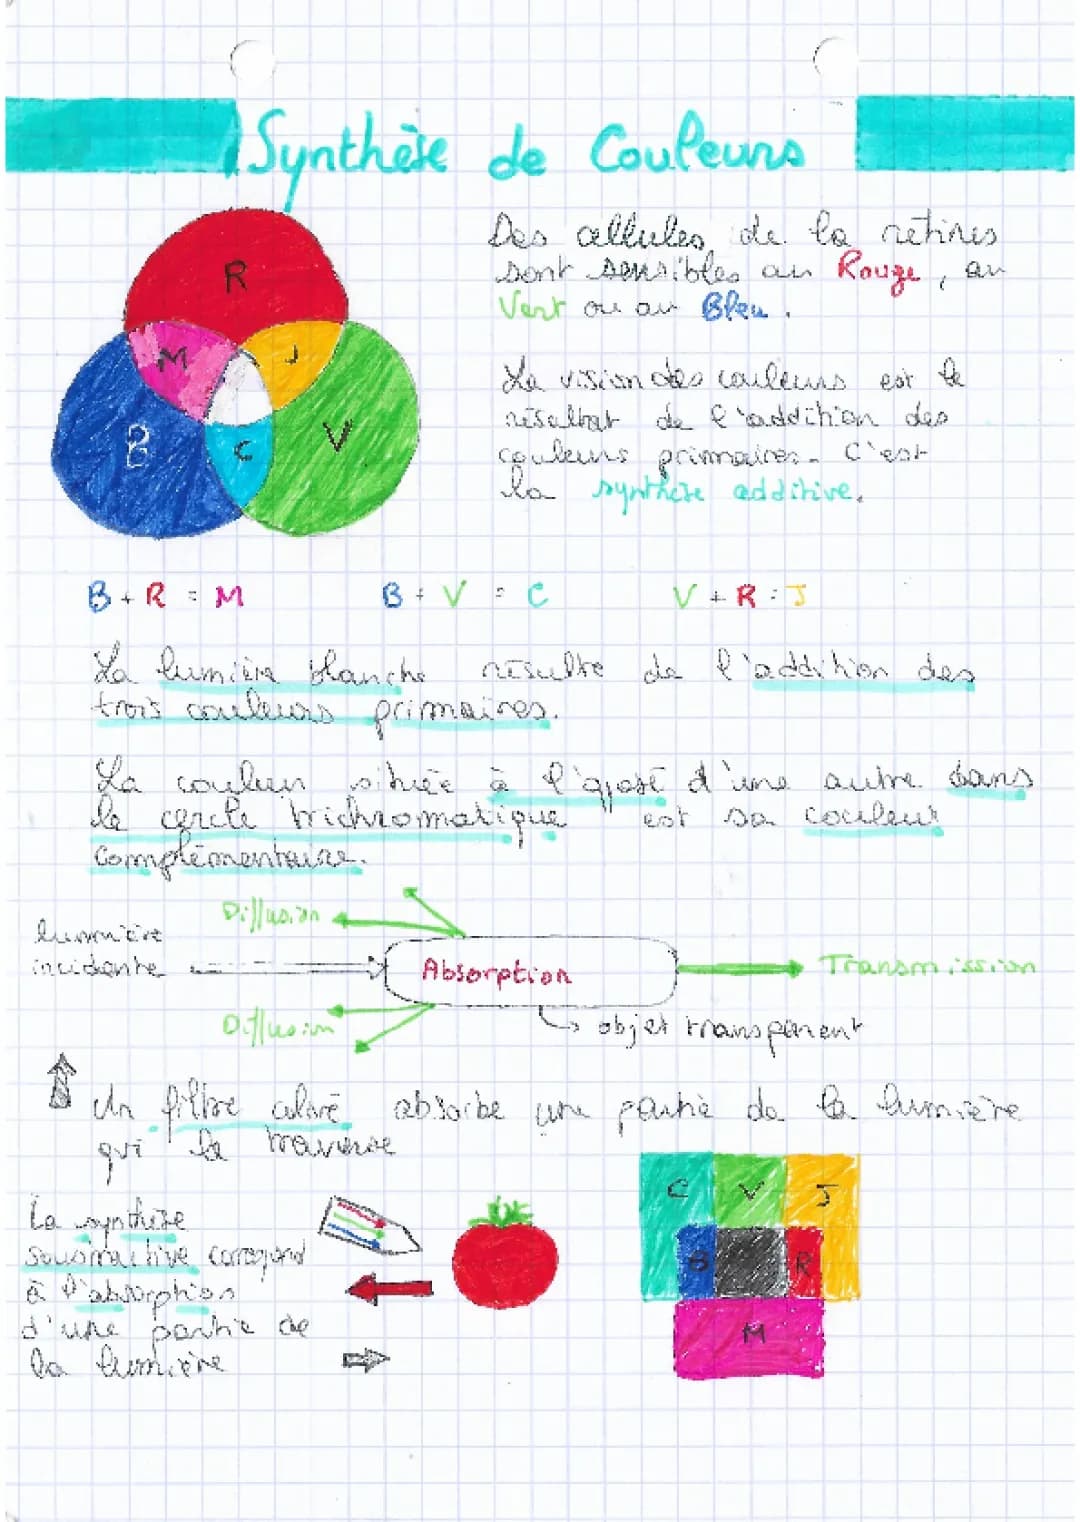 Synthèse de Couleurs
R
M
J
B
C
V
Des cellules de la rétines
sont sensibles au Rouge, au
Vert ou au Bleu.
La vision des couleurs est le
résultat de l'addition des
couleurs primaires. C'est
la synthèse additive.
B + R = M
B + V = C
V + R = J
La lumière blanche résulte de l'addition des
trois couleurs primaires.
La couleur située à l'oposé d'une autre dans
le cercle trichromatique est sa couleur
complémentaire.
Diffusion
lumière
incidente
Absorption
Transmission
Diffusion
objet transparent
Un filtre coloré absorbe une partie de la lumière
qui la traverse
C V J
B R
M
La synthèse
soustractive correspond
à l'absorption
d'une partie de
la lumière